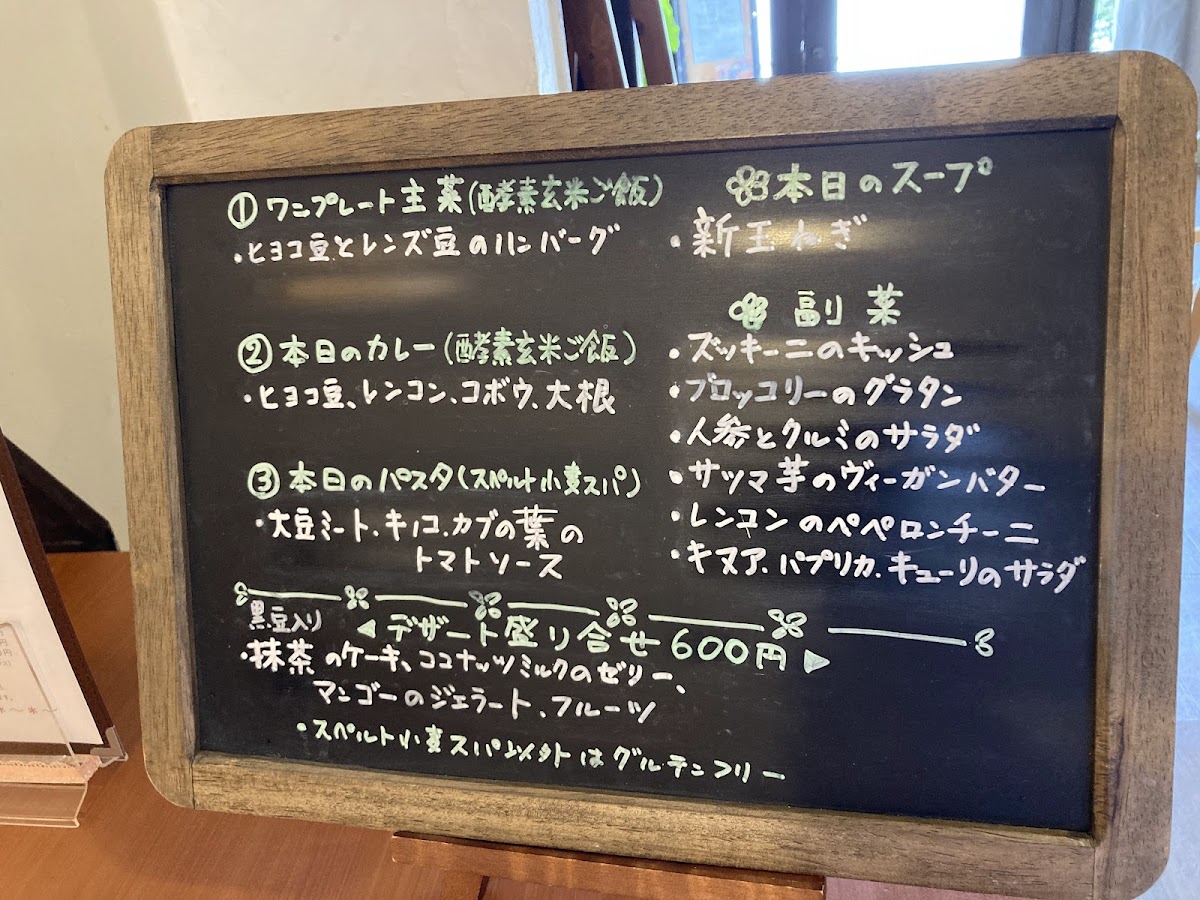 ① ワンプレート主菜(酵素玄米ご飯)
・ヒヨコ豆とレンズ豆のハンバーグ
② 本日のカレー(酵素玄米ご飯)
・ヒヨコ豆、レンコン、コボウ、大根
③ 本日のパスタ(スペルト小麦スパ)
・大豆ミート、キノコ、カブの葉の
トマトソース
本日のスープ
・新玉ねぎ
副菜
・ズッキーニのキッシュ
・ブロッコリーのグラタン
・人参とクルミのサラダ
・サツマ芋のヴィーガンバター
・レンコンのペペロンチーニ
・キヌア、パプリカ、キューリのサラダ
◀ デザート盛り合せ 600円 ▶
黒豆入り
・抹茶のケーキ、ココナッツミルクのゼリー、
マンゴーのジェラート、フルーツ
・スペルト小麦スパ以外はグルテンフリー